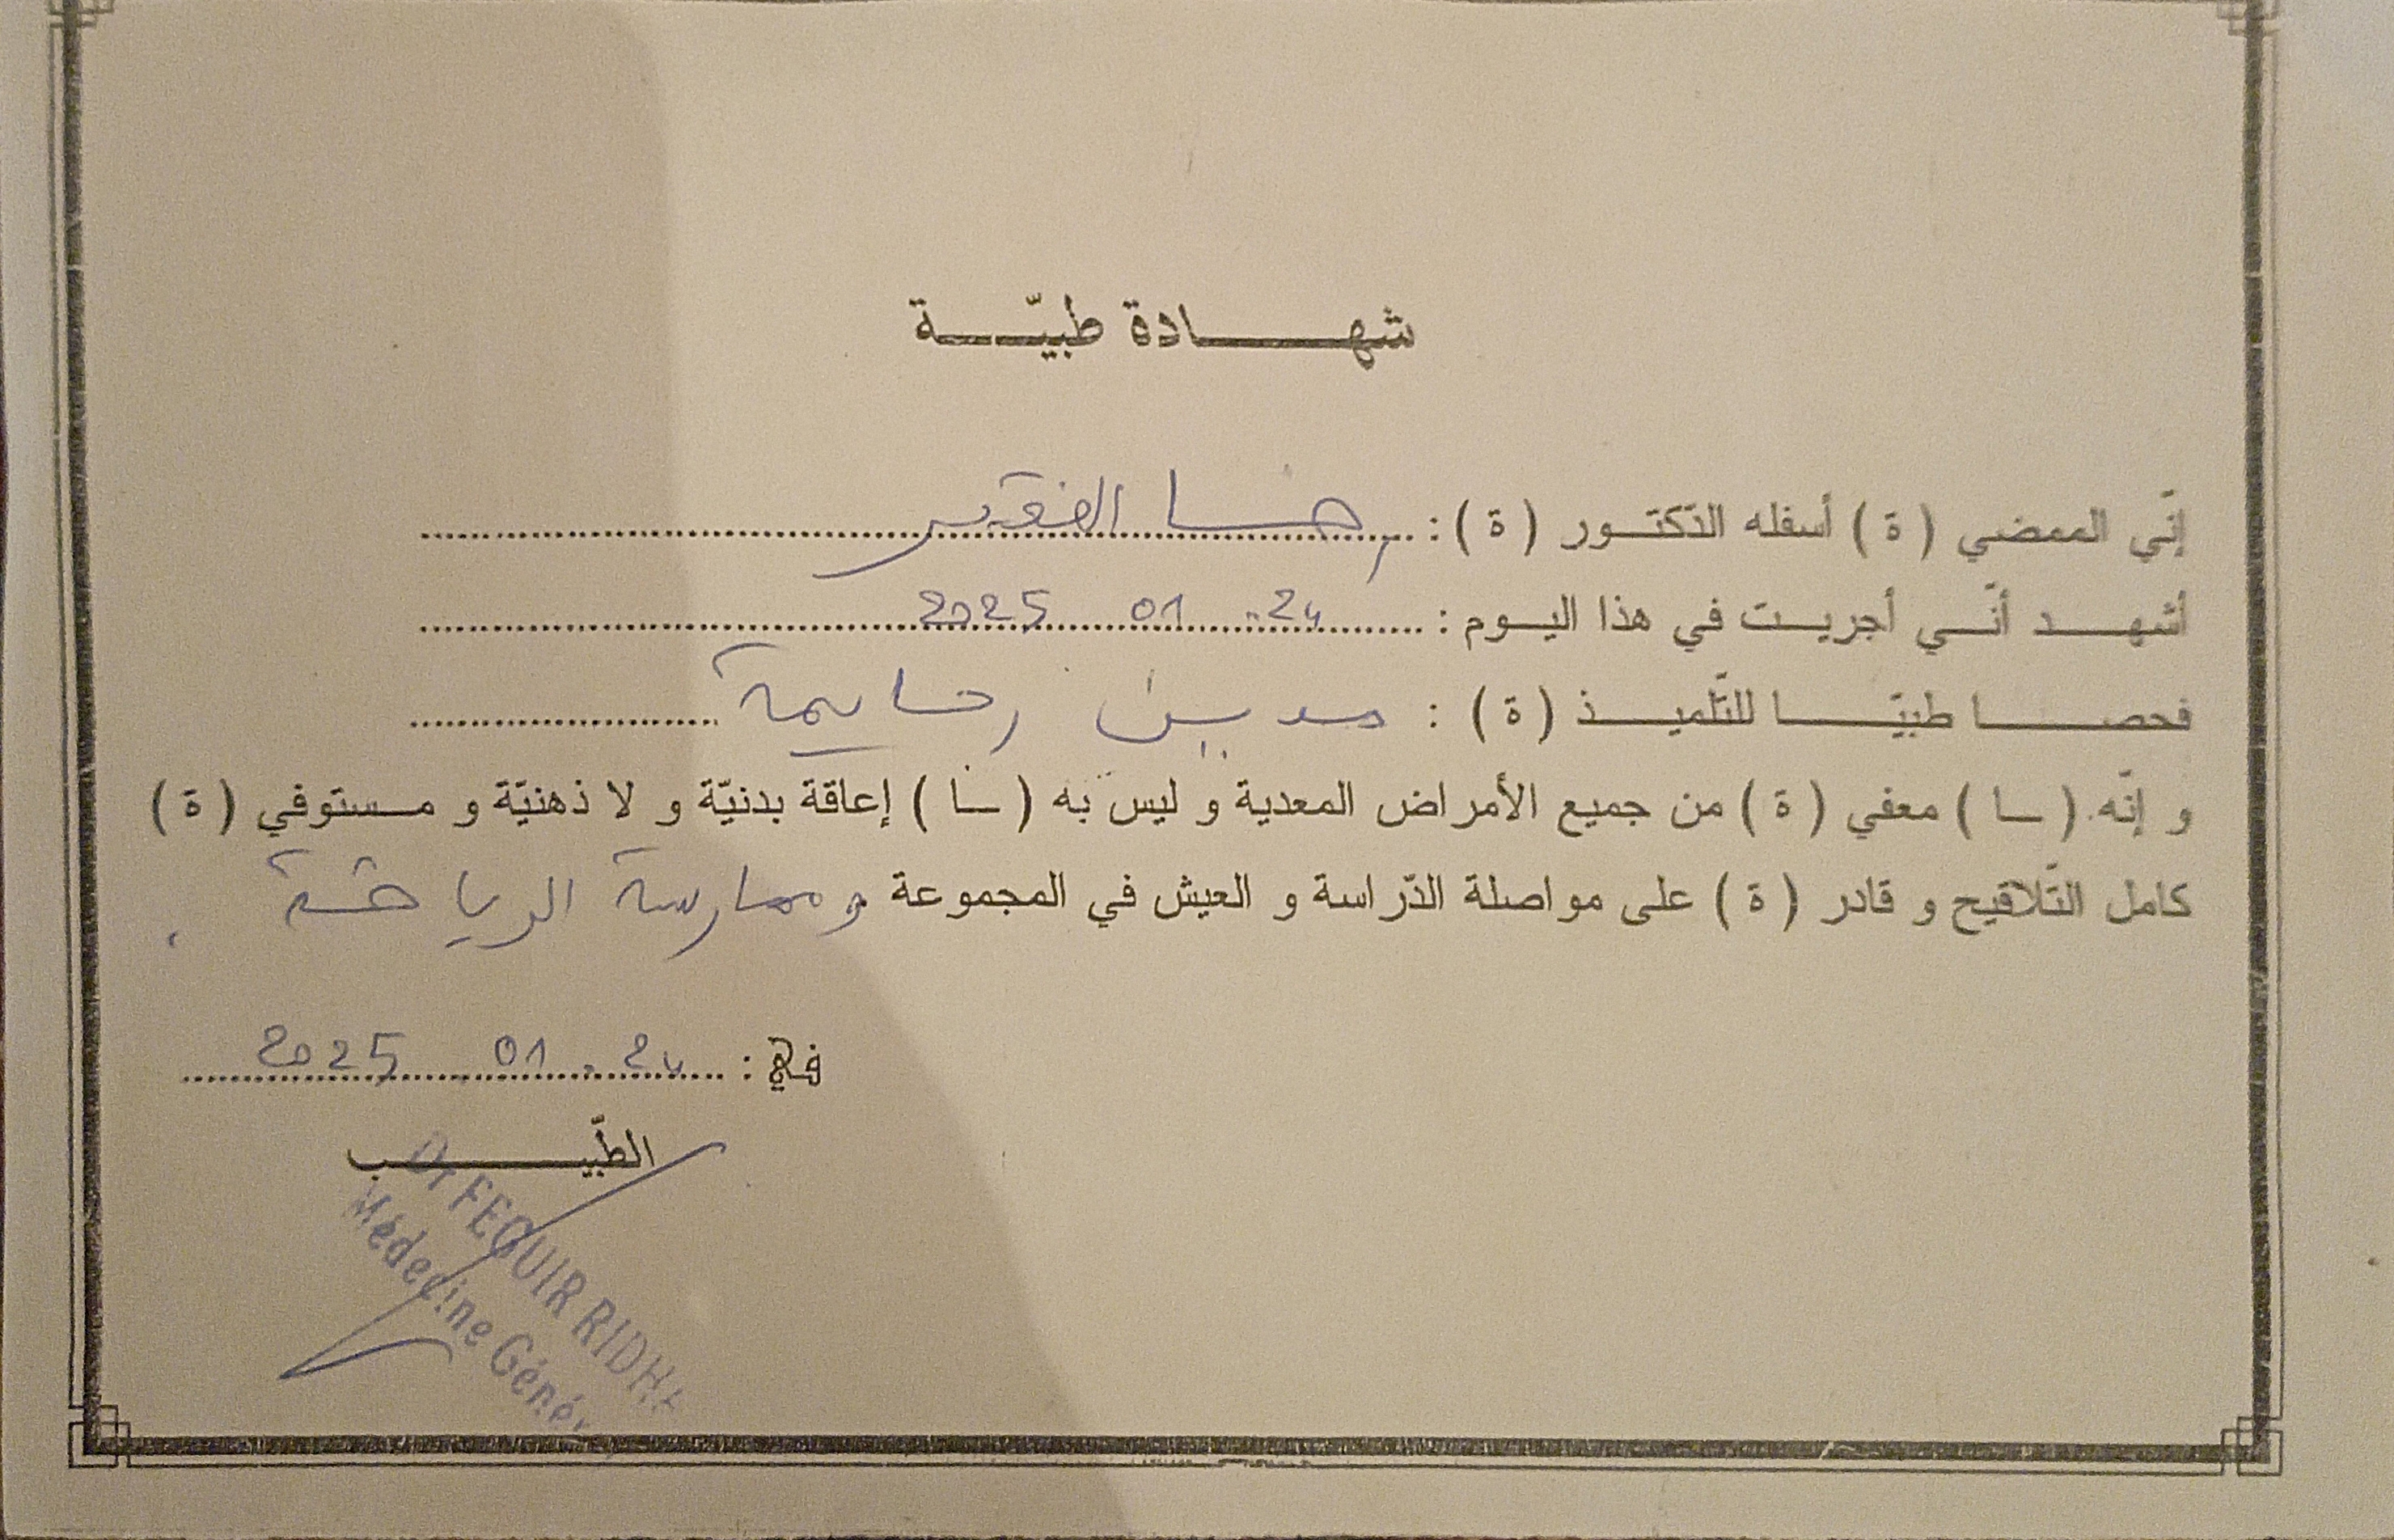 شهادة طبيّة
إنّي الممضي ( ة ) أسفله الدّكتور ( ة ) : رضا الفقير
أشهد أنّي أجريت في هذا اليوم : 24 . 01 2025
فحصا طبيّا للتّلميذ ( ة ) :
و إنّه ( ـا ) معفي ( ة ) من جميع الأمراض المعدية و ليس به ( ـا ) إعاقة بدنيّة و لا ذهنيّة و مستوفي ( ة )
كامل التّلاقيح و قادر ( ة ) على مواصلة الدّراسة و العيش في المجموعة وممارسة الرياضة .
في : 24 . 01 2025
الطّبيب
Dr FEGUIR RIDHA
Médecine Génér